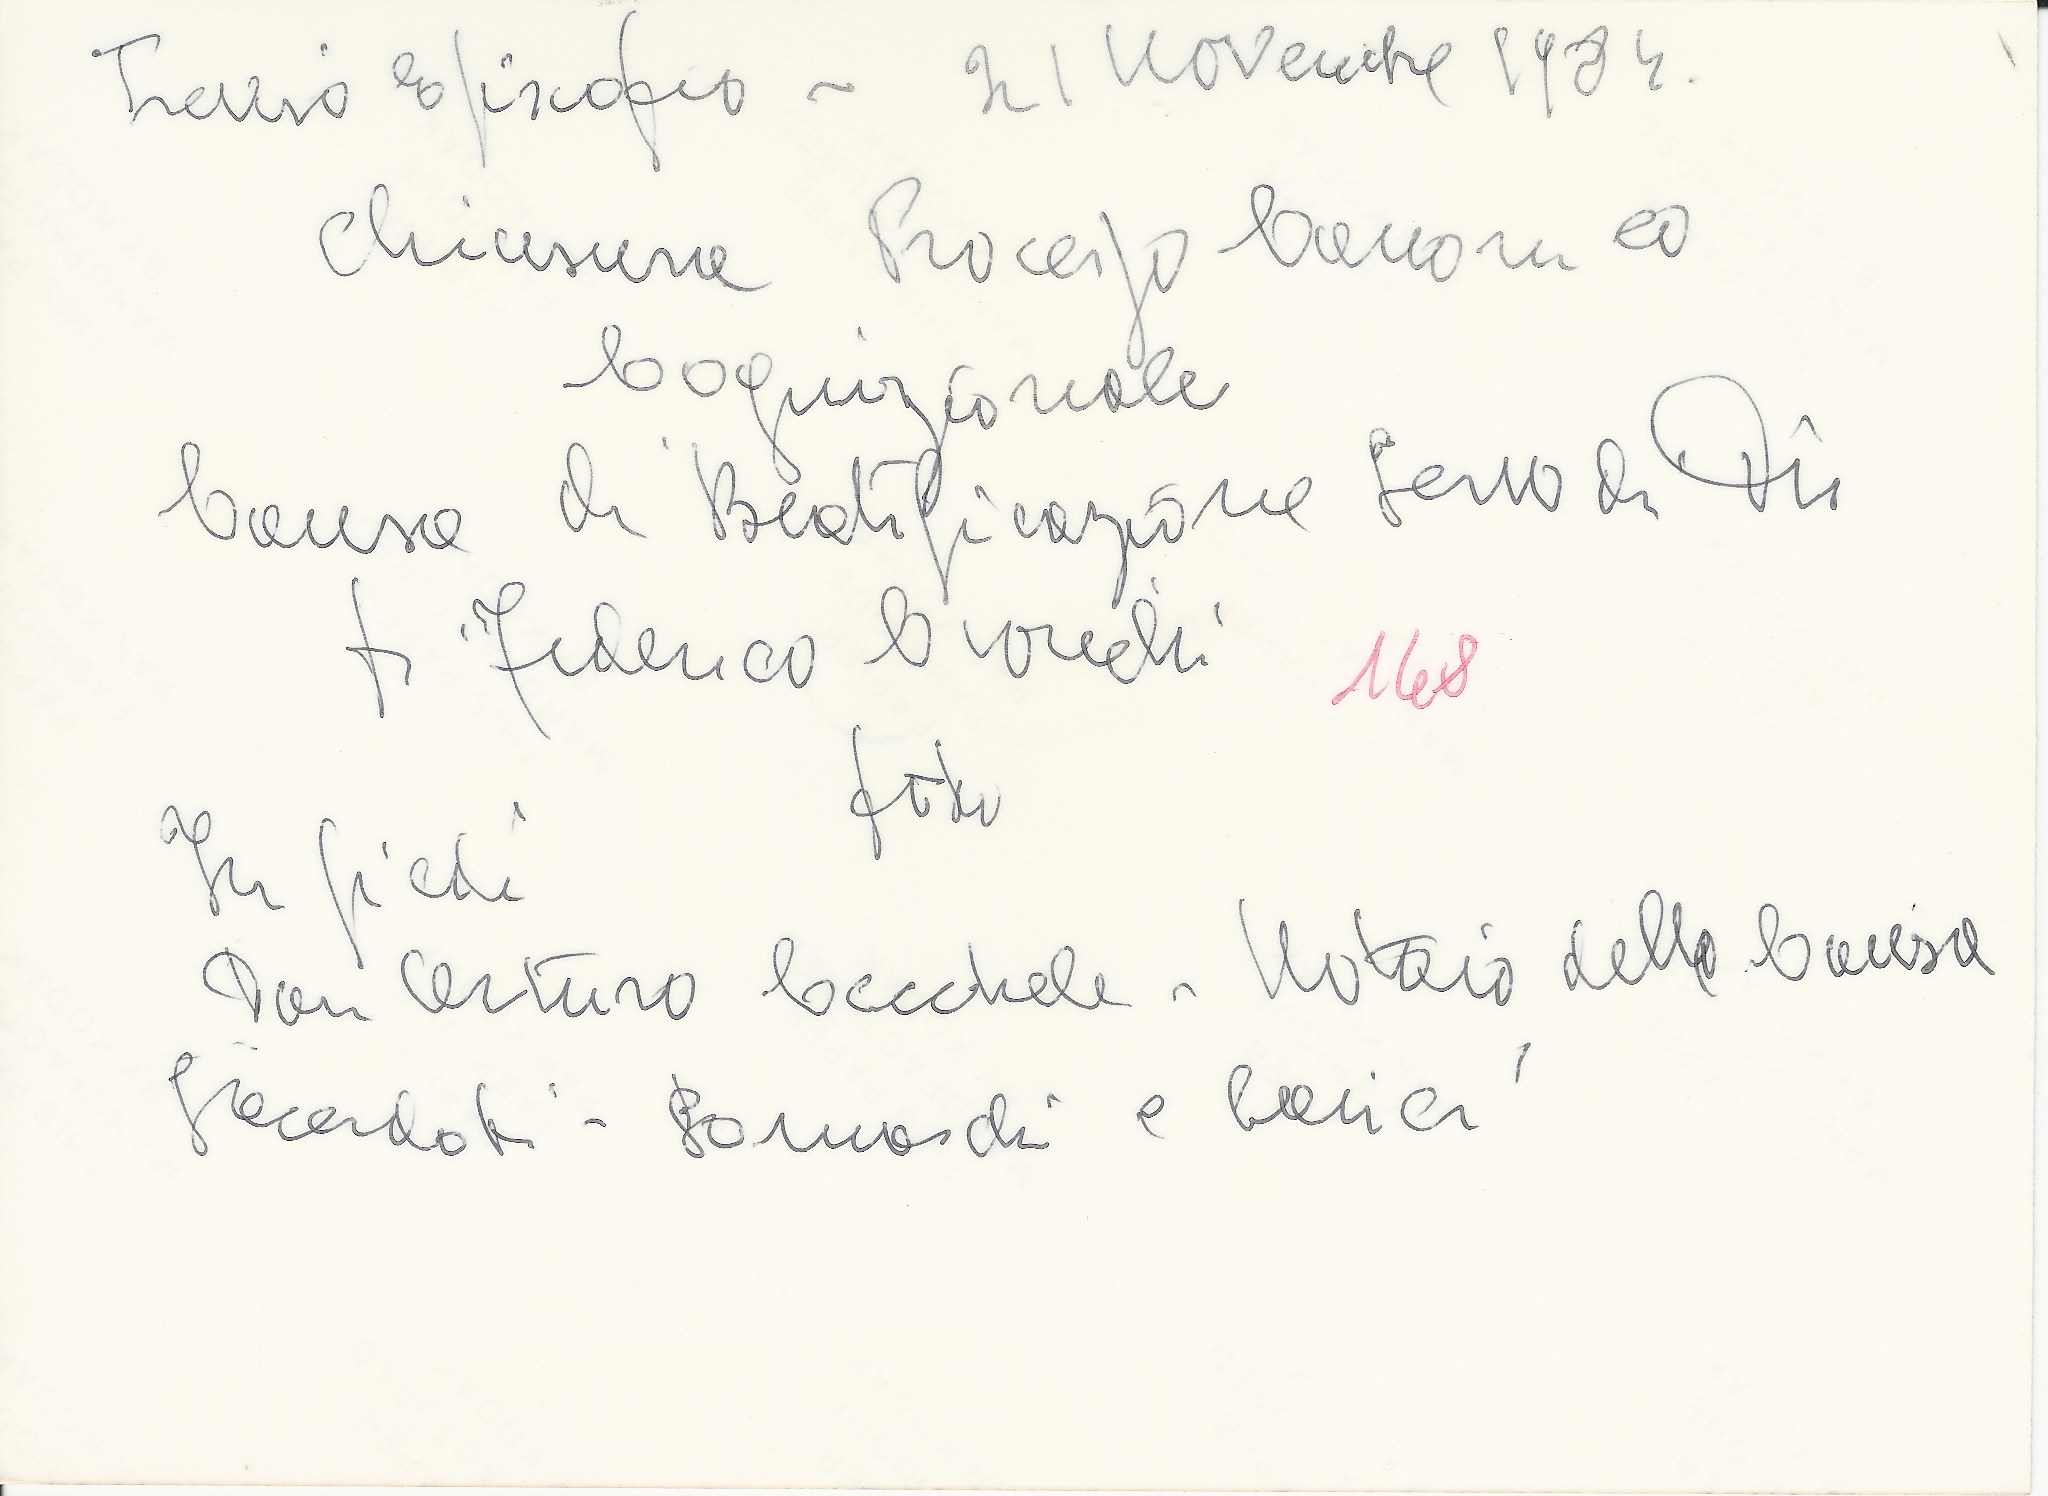 Treviso Episcopio - 21 Novembre 1984.
Chiusura Processo Canonico
Cognizionale
Causa di Beatificazione Servo di Dio
fr "Federico Cionchi" 168
foto
In piedi
Don Arturo - Notaio della Causa
Sacerdoti - Somaschi e Laici